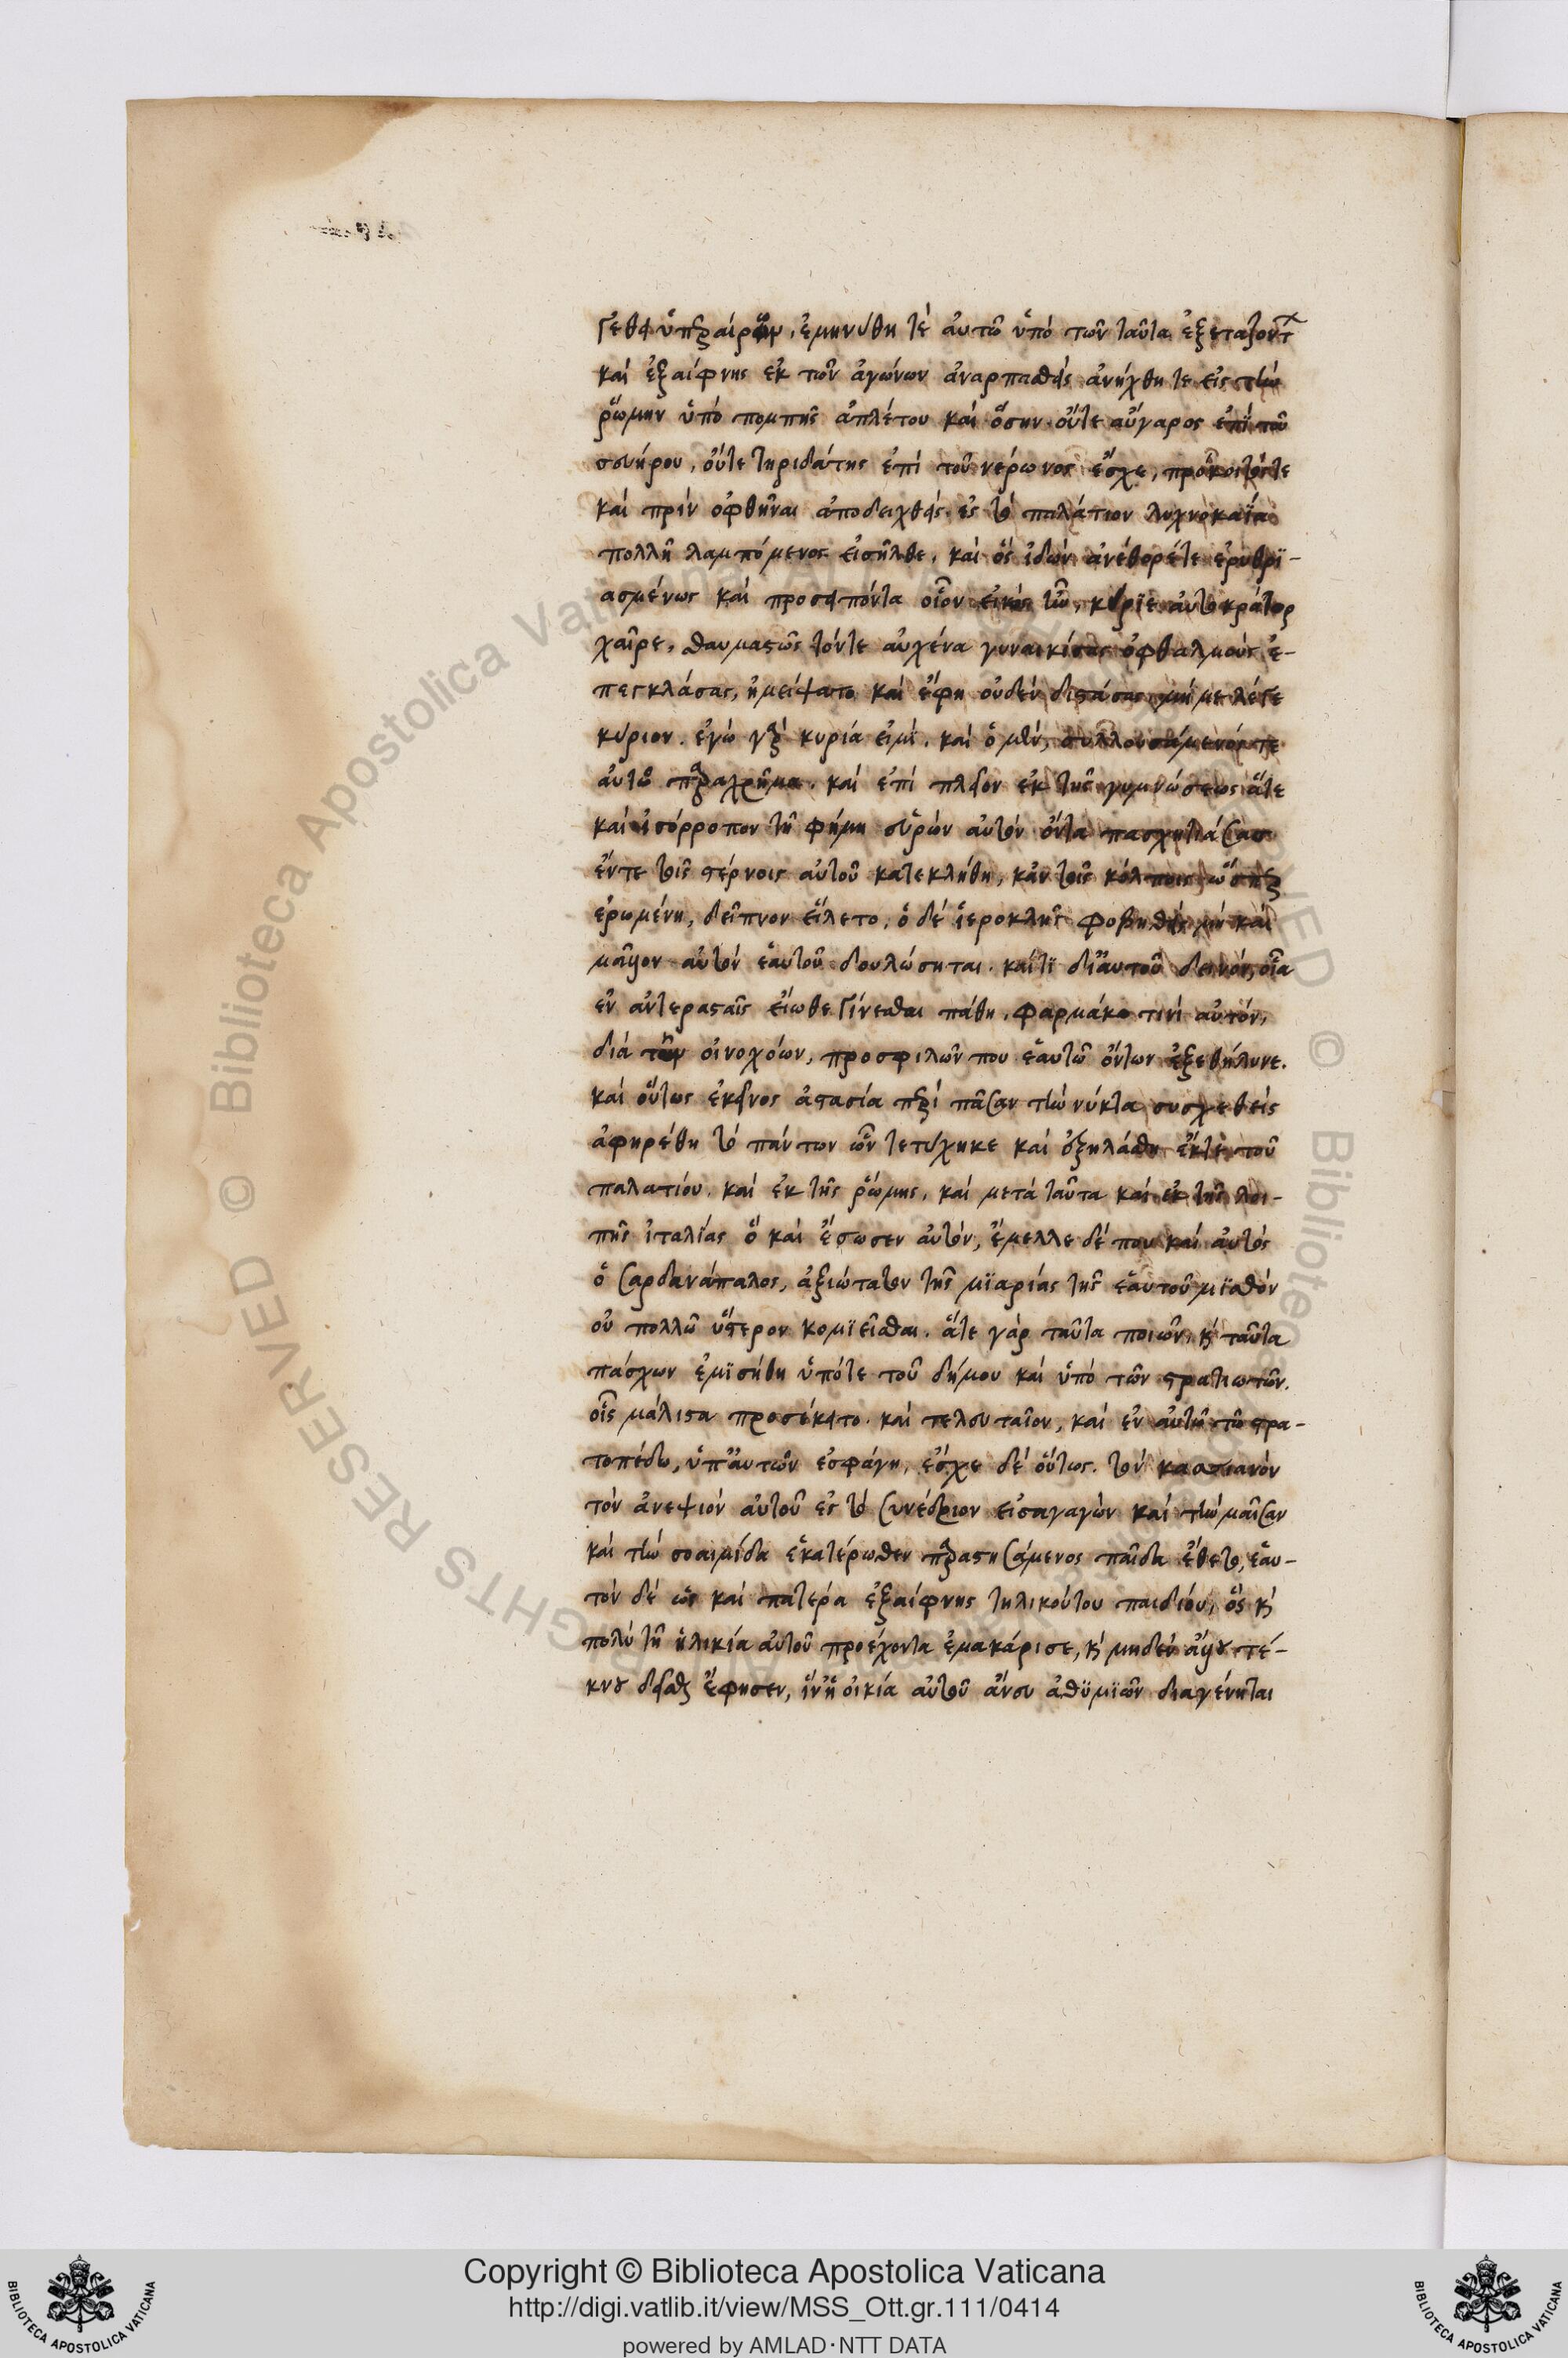 γέθει ὑπεραίρων, ἐμηνύθη τὲ αὐτῶ ὑπὸ τῶν ταῦτα ἐξεταζόντ
καὶ ἐξαίφνης ἐκ τῶν ἀγώνων ἀναρπασθεὶς ἀνήχθη τε εἰς τὴν
ῥώμην ὑπὸ πομπῆς ἀπλέτου καὶ ὅσην οὔτε αὔγαρος ἐπὶ τοῦ
σευήρου, οὔτε τηριδάτης ἐπὶ τοῦ νέρωνος ἔσχε, πρόκοιτός τε
καὶ πρὶν ὀφθῆναι ἀποδειχθεὶς ἐς τὸ παλάτιον λυχνοκαΐα
πολλῆ λαμπόμενος εἰσῆλθε, καὶ ὃς ἰδὼν ἀνέθορέ τε ἐρυθρι-
ασμένως καὶ προσειπόντα οἷον εἰκὸς ἦν, κύριε αὐτοκράτορ
χαῖρε, θαυμαστῶς τόν τε αὐχένα γυναικίσας ὀφθαλμοὺς ἐ-
πεγκλάσας, ἠμείψατο καὶ ἔφη οὐδὲν διστάσας, μή με λέγε
κύριον. ἐγὼ γὰρ κυρία εἰμί. καὶ ὁ μὲν, συλλουσάμενός τε
αὐτῶ παραχρῆμα. καὶ ἐπὶ πλεῖον ἐκ τῆς γυμνώσεως ἅτε
καὶ ἰσόρροπον τῆ φήμη εὑρὼν αὐτὸν ὄντα πασχητιάσας
ἔν τε τοῖς στέρνοις αὐτοῦ κατεκλήθη, κἀν τοῖς κόλποις ὥσπερ
ἐρωμένη, δεῖπνον εἵλετο, ὁ δὲ ἱεροκλῆς φοβηθεὶς μὴ καὶ
μᾶλλον αὐτὸν ἑαυτοῦ δουλώσηται. καί τι δι' αὐτοῦ δεινὸν, οἷα
ἐν ἀντερασταῖς εἴωθε γίνεσθαι πάθη, φαρμάκω τινὶ αὐτόν,
διὰ τῶν οἰνοχόων, προσφιλῶν που ἑαυτῶ ὄντων ἐξεθήλυνε.
καὶ οὕτως ἐκεῖνος ἀστασία περὶ πᾶσαν τὴν νύκτα συσχεθεὶς
ἀφηρέθη τὸ πάντων ὧν τετύχηκε καὶ ἐξηλάθη ἔκ τε τοῦ
παλατίου. καὶ ἐκ τῆς ῥώμης, καὶ μετὰ ταῦτα καὶ ἐκ τῆς λοι-
πῆς ἰταλίας ὃ καὶ ἔσωσεν αὐτόν, ἔμελλε δέ που καὶ αὐτὸς
ὁ σαρδανάπαλος, ἀξιώτατον τῆς μιαρίας τῆς ἑαυτοῦ μισθὸν
οὐ πολλῶ ὕστερον κομιεῖσθαι. ἅτε γὰρ ταῦτα ποιῶν, κ ταῦτα
πάσχων ἐμισήθη ὑπό τε τοῦ δήμου καὶ ὑπὸ τῶν στρατιωτῶν.
οἷς μάλιστα προσέκειτο. καὶ τελευταῖον, καὶ ἐν αὐτῆ τῶ στρα-
τοπέδω, ὑπ' αὐτῶν ἐσφάγη, ἔσχε δὲ οὕτως. τὸν κασσιανὸν
τὸν ἀνεψιὸν αὐτοῦ ἐς τὸ συνέδριον εἰσαγαγὼν καὶ τὴν μαῖσαν
καὶ τὴν σοαιμίδα ἑκατέρωθεν παραστησάμενος παῖδα ἔθετο, ἑαυ-
τὸν δὲ ὡς καὶ πατέρα ἐξαίφνης τηλικούτου παιδίου, ὃς κ
πολὺ τῆ ἡλικία αὐτοῦ προέχοντα ἐμακάρισε, κ μηδὲν ἄλλου τέ-
κνου δεῖσθαι ἔφησεν, ἵν' ἡ οἰκία αὐτοῦ ἄνευ ἀθυμιῶν διαγένηται
Copyright © Biblioteca Apostolica Vaticana
http://digi.vatlib.it/view/MSS_Ott.gr.111/0414
powered by AMLAD·NTT DATA